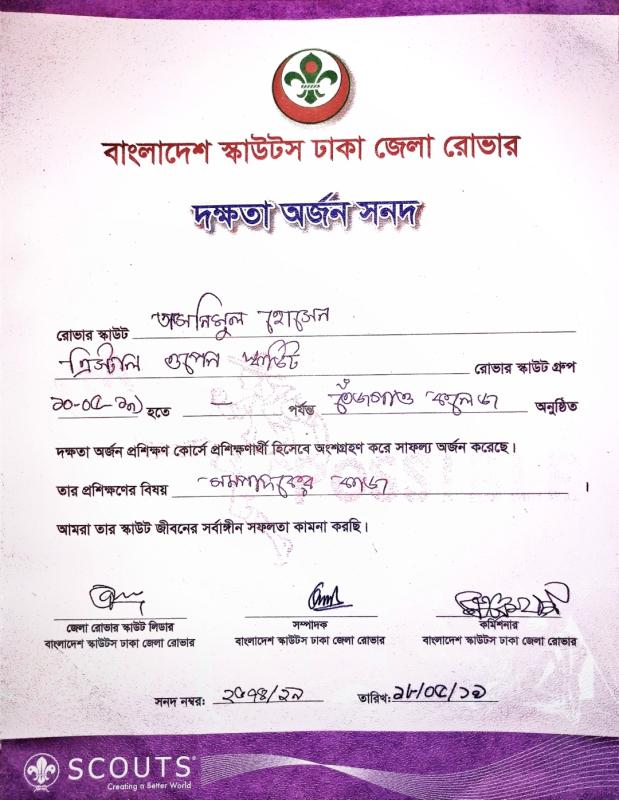 বাংলাদেশ স্কাউটস ঢাকা জেলা রোভার
দক্ষতা অর্জন সনদ
রোভার স্কাউট হোসেন
ওপেন স্কাউট রোভার স্কাউট গ্রুপ
হতে - পর্যন্ত তেঁজগাও কলেজ অনুষ্ঠিত
দক্ষতা অর্জন প্রশিক্ষণ কোর্সে প্রশিক্ষণার্থী হিসেবে অংশগ্রহণ করে সাফল্য অর্জন করেছে।
তার প্রশিক্ষণের বিষয় কাজ ।
আমরা তার স্কাউট জীবনের সর্বাঙ্গীন সফলতা কামনা করছি।
জেলা রোভার স্কাউট লিডার
বাংলাদেশ স্কাউটস ঢাকা জেলা রোভার
সম্পাদক
বাংলাদেশ স্কাউটস ঢাকা জেলা রোভার
কমিশনার
বাংলাদেশ স্কাউটস ঢাকা জেলা রোভার
সনদ নম্বর: ২৫৭৪/১৯ তারিখ: ১৮/০৫/১৯
SCOUTS
Creating a Better World